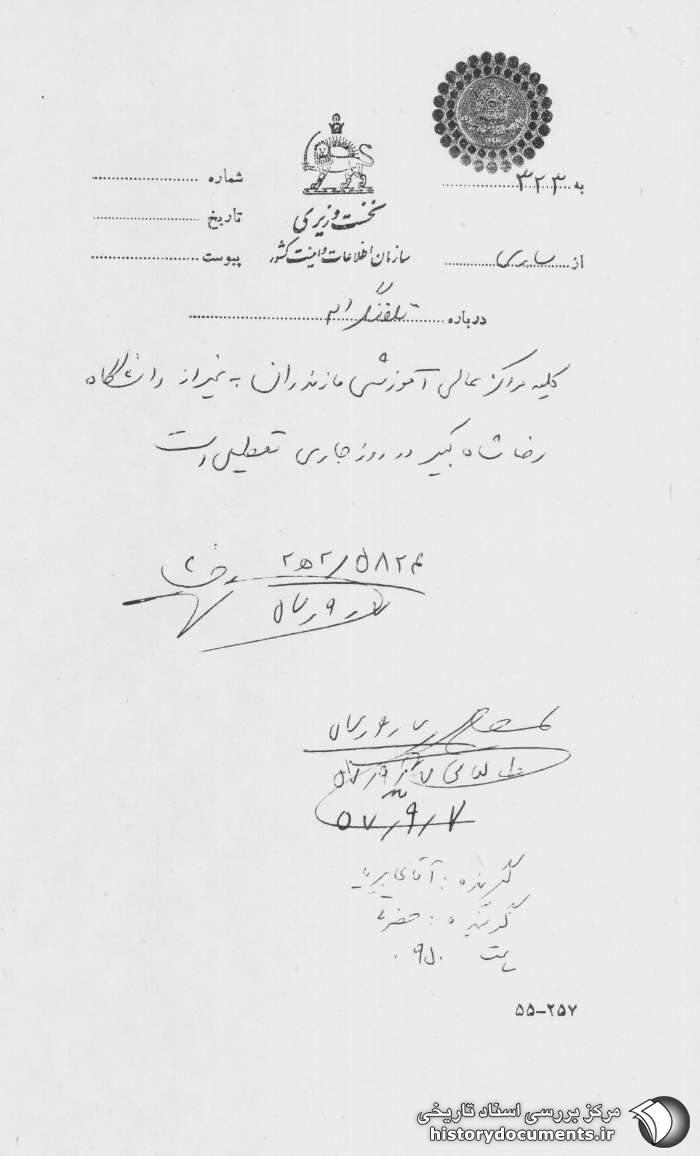 به ۳۲۳
شماره
نخست وزیری
تاریخ
سازمان اطلاعات و امنیت کشور
از ساری
پیوست
درباره تلفنگرام
کلیه مراکز عالی آموزشی مازندران به غیر از دانشگاه
رضا شاه کبیر در روز جاری تعطیل است
۲ه۲/۵۸۲۴
۵۷/۹/۷
۵۷/۹/۷
گوینده : آقای
گیرنده : حضرتی
ساعت ۰۹۵۰
۵۵-۲۵۷
مرکز بررسی اسناد تاریخی
historydocuments.ir